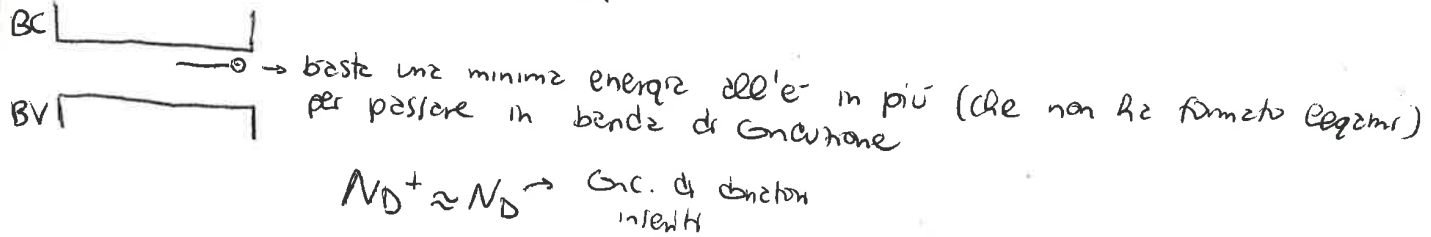 BC
→ basta una minima energia all'e⁻ in più (che non ha formato legami)
BV per passare in banda di conduzione
N_D⁺ ≈ N_D → Conc. di donatori
inseriti